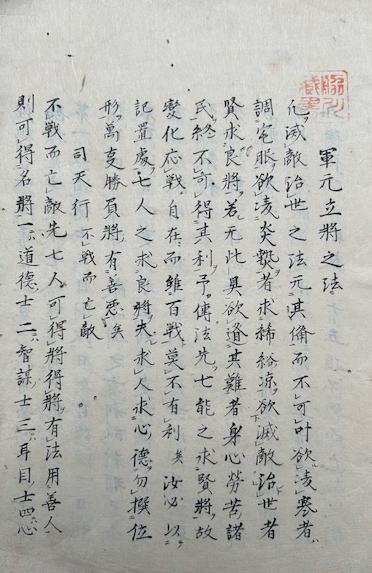 軍元立将之法
凡滅敵治世之法元其備而不可叶欲凌寒者
調宅服欲凌炎熱者求稀絺凉欲滅敵治世者
賢求良将若无此具欲遁其難者身心労苦諸
民終不可得其利予傳法先七能之求賢将故
變化應戰自在而雖百戰莫不有利矣汝必以
記置處七人之求良将夫求人求心德勿撰位
形萬変勝負将有善悪矣
司天行不戰而亡敵
不戰而亡敵先七人可得将得将有法用善人
則可得名将一道德士二智謀士三耳目士四心